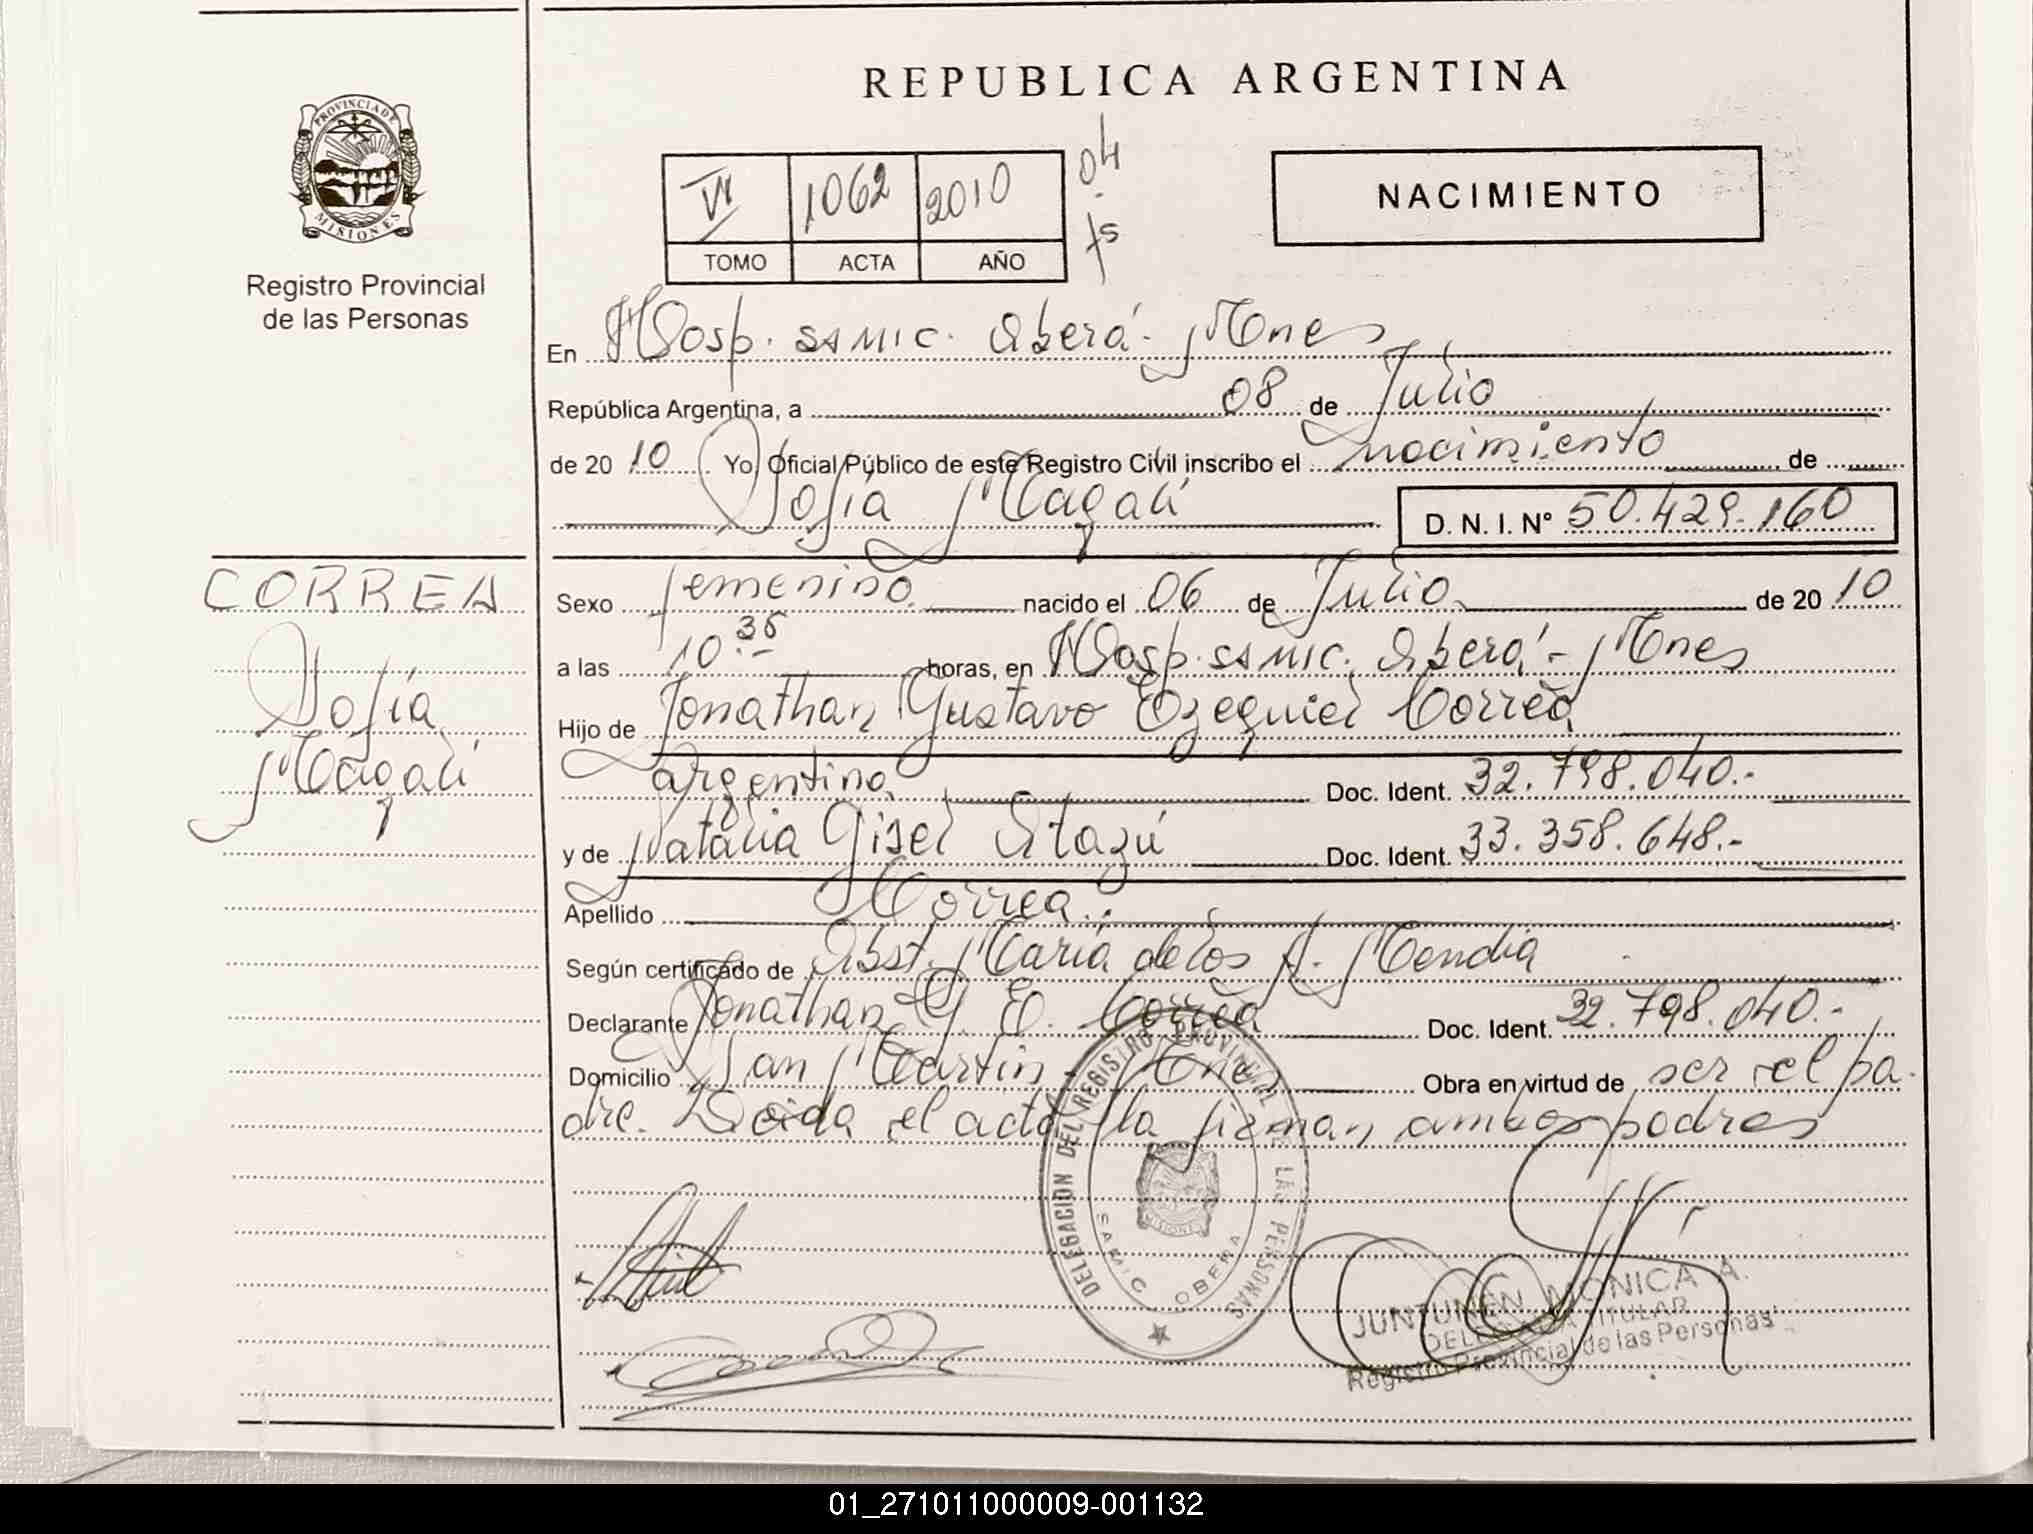 REPUBLICA ARGENTINA
PROVINCIA DE
MISIONES
Registro Provincial
de las Personas
VI 1062 2010
TOMO ACTA AÑO
04
fs
NACIMIENTO
En Hosp. SAMIC. Oberá - Mnes
República Argentina, a 08 de Julio
de 20 10 Yo, Oficial Público de este Registro Civil inscribo el nacimiento de
Sofía Magalí D. N. I. Nº 50.429.160
CORREA
Sofía
Magalí
Sexo femenino nacido el 06 de Julio de 20 10
a las 10.35 horas, en Hosp. SAMIC. Oberá - Mnes
Hijo de Jonathan Gustavo Ezequiel Correa
argentino Doc. Ident. 32.798.040.-
y de Natalia Gisel Otazú Doc. Ident. 33.358.648.-
Apellido Correa.
Según certificado de Obst. María de los A. Mendia
Declarante Jonathan G. E. Correa Doc. Ident. 32.798.040.-
Domicilio San Martín - Mnes Obra en virtud de ser el pa
dre. Leída el acta la firman ambos padres
DELEGACION DEL REGISTRO PROVINCIAL DE LAS PERSONAS
SAMIC OBERA
MISIONES
JUNTUNEN MONICA A.
DELEGADA TITULAR
Registro Provincial de las Personas
01_271011000009-001132